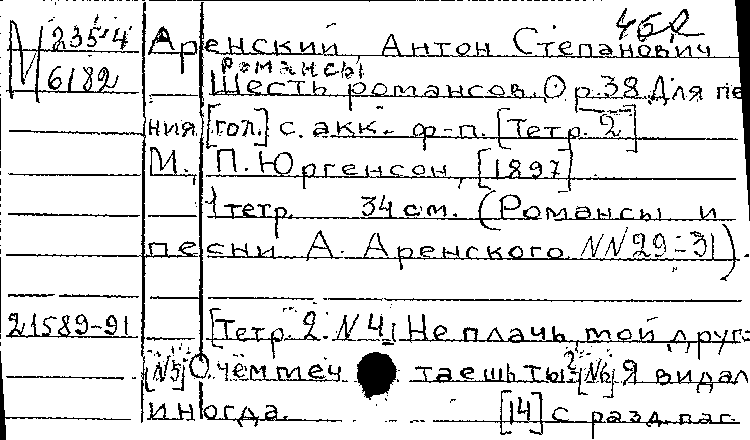 462
М 235-4 Аренский, Антон Степанович
6182 Романсы
Шесть романсов. Op. 38. Для пе
ния [гол.] с акк. ф-п. [Тетр. 2]
М., П. Юргенсон, [1897]
1 тетр. 34 см. (Романсы и
песни А. Аренского NN 29-31).
21589-91 [Тетр. 2. N 4] Не плачь, мой друг-
[N5] О чем меч таешь ты? [N6] Я видал
иногда. [14] с разд. паг.